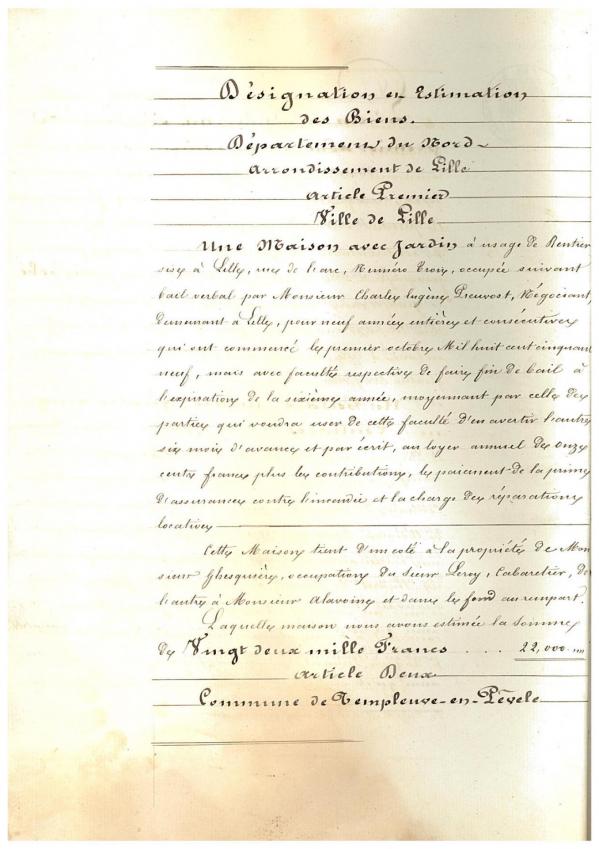 Désignation et Estimation
des Biens.
Département du Nord
Arrondissement de Lille
Article Premier
Ville de Lille
Une Maison avec Jardin à usage de Rentier
sise à Lille, rue de l'arc, Numéro trois, occupée suivant
bail verbal par Monsieur Charles Eugène Prouvost, Négociant,
demeurant à Lille, pour neuf années entières et consécutives
qui ont commencé le premier octobre Mil huit cent cinquante
neuf, mais avec faculté respective de faire fin de bail à
l'expiration de la sixième année, moyennant par celle des
parties qui voudra user de cette faculté d'en avertir l'autre
six mois d'avance et par écrit, au loyer annuel de onze
cents francs plus les contributions, le paiement de la prime
d'assurance contre l'incendie et la charge des réparations
locatives
Cette Maison tient d'un coté à la propriété de Mon
sieur Ghesquière, occupation du sieur Leroy, Cabaretier, de
l'autre à Monsieur Alavoine et dans le fond au rempart.
Laquelle maison nous avons estimée la Somme
de Vingt deux mille Francs . . . . 22,000 "
Article Deux
Commune de Templeuve-en-Pévèle